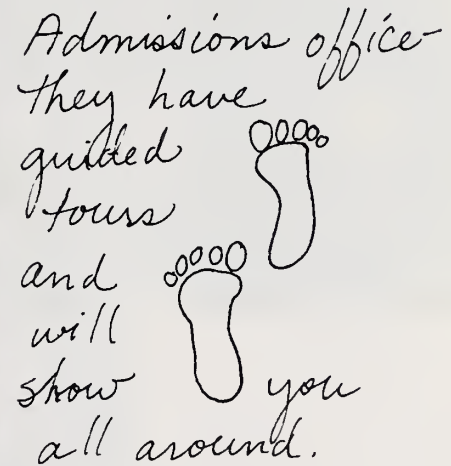 Admissions office-
they have
guided
tours
and
will
show you
all around.